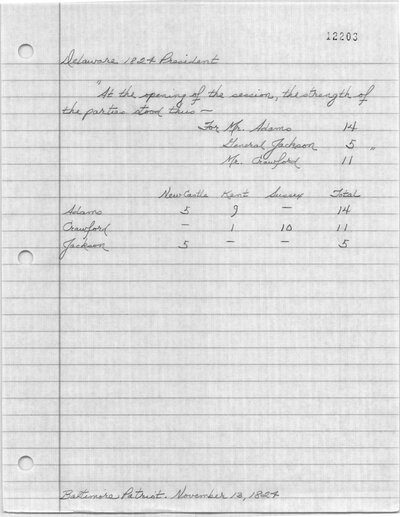 12203
Delaware 1824 President
"At the opening of the session, the strength of
the parties stood thus —
For Mr. Adams 14
General Jackson 5 "
Mr. Crawford 11
New Castle Kent Sussex Total
Adams 5 9 — 14
Crawford — 1 10 11
Jackson 5 — — 5
Baltimore Patriot. November 13, 1824